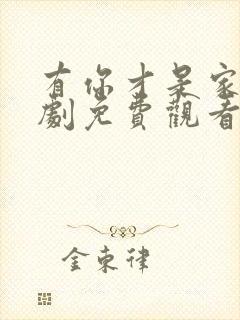 有你才是家
劇免費觀看
金東律